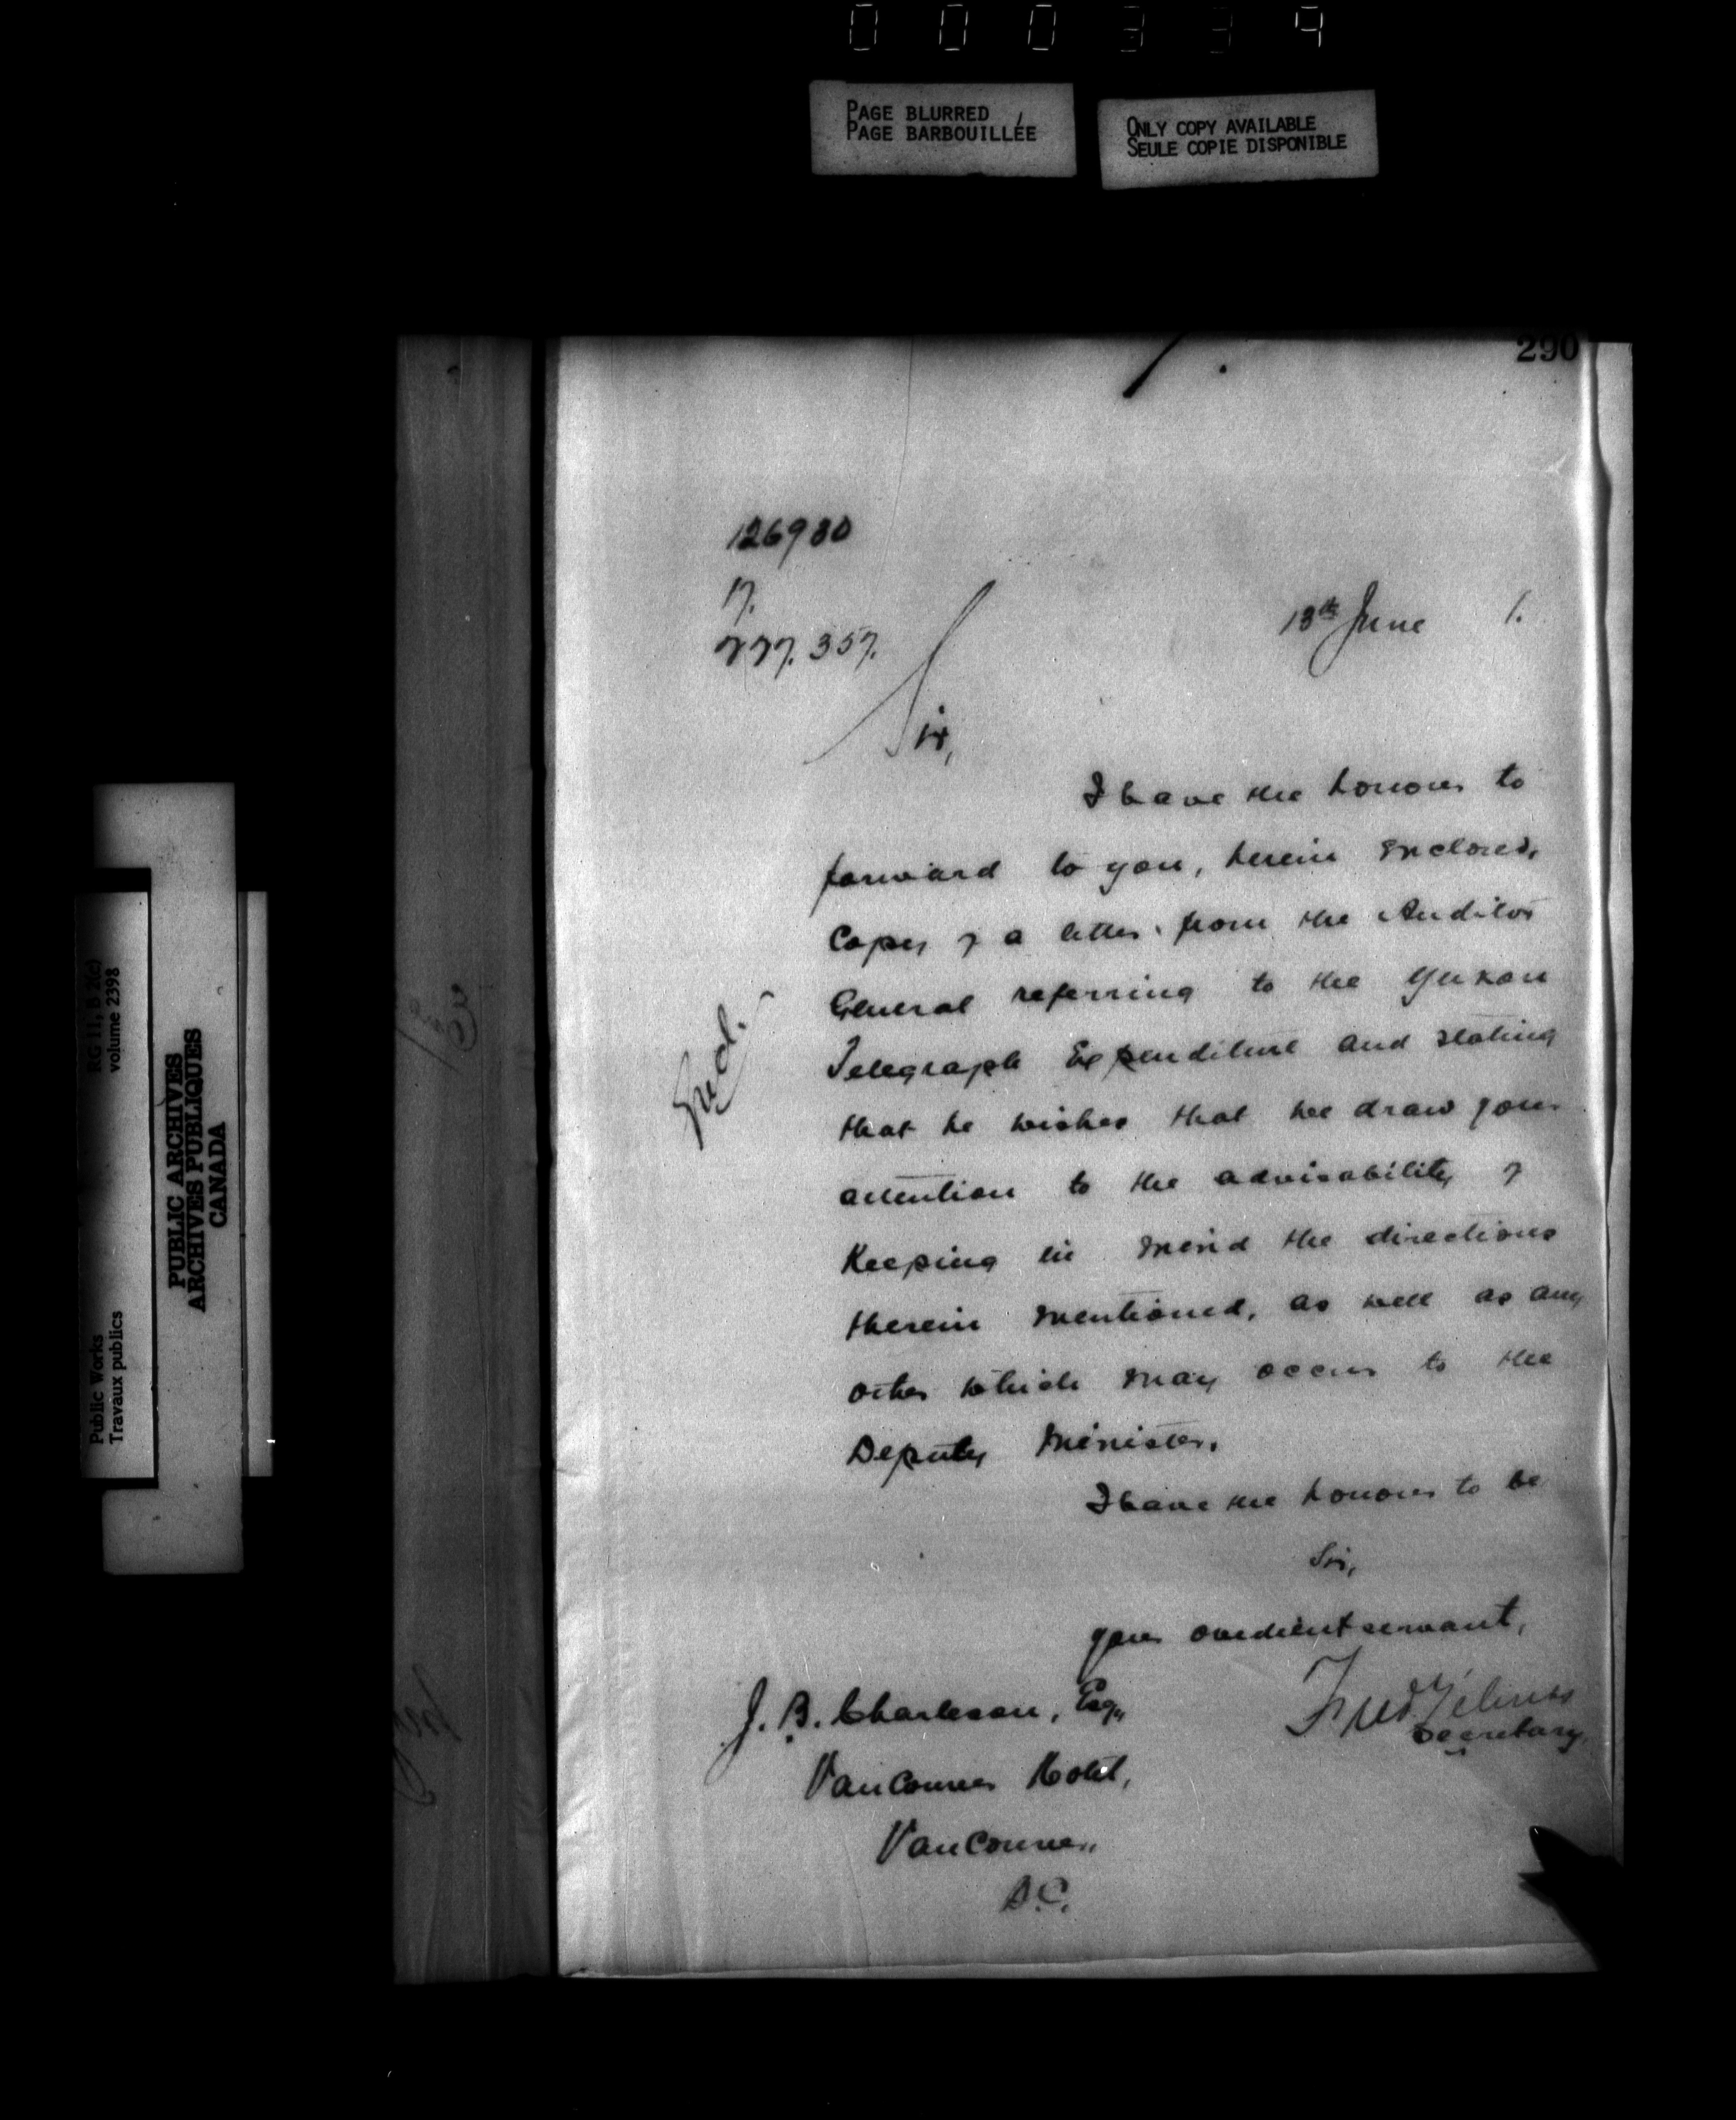 000334
PAGE BLURRED
PAGE BARBOUILLÉE
ONLY COPY AVAILABLE
SEULE COPIE DISPONIBLE
290
126980
13th June 1.
Sir,
I have the honour to
forward to you, herein enclosed,
Copy of a letter from the Auditor
General referring to the Yukon
Telegraph Expenditure and stating
that he wishes that we draw your
Encl.
attention to the advisability of
Keeping in mind the directions
therein mentioned, as well as any
other which may occur to the
Deputy Minister.
I have the honour to be
Sir,
your obedient servant,
Fred Gélinas
Secretary.
J. B. Charleson, Esq.,
Vancouver Hotel,
Vancouver,
B.C.
Public Works
Travaux publics
RG 11, B 2(c)
volume 2398
PUBLIC ARCHIVES
ARCHIVES PUBLIQUES
CANADA